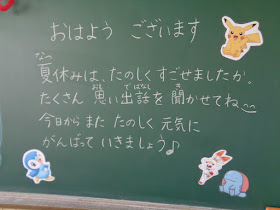 おはよう ございます
夏休みは、たのしく すごせましたか。
たくさん 思い出話を 聞かせてね
今日から また たのしく 元気に
がんばって いきましょう♪